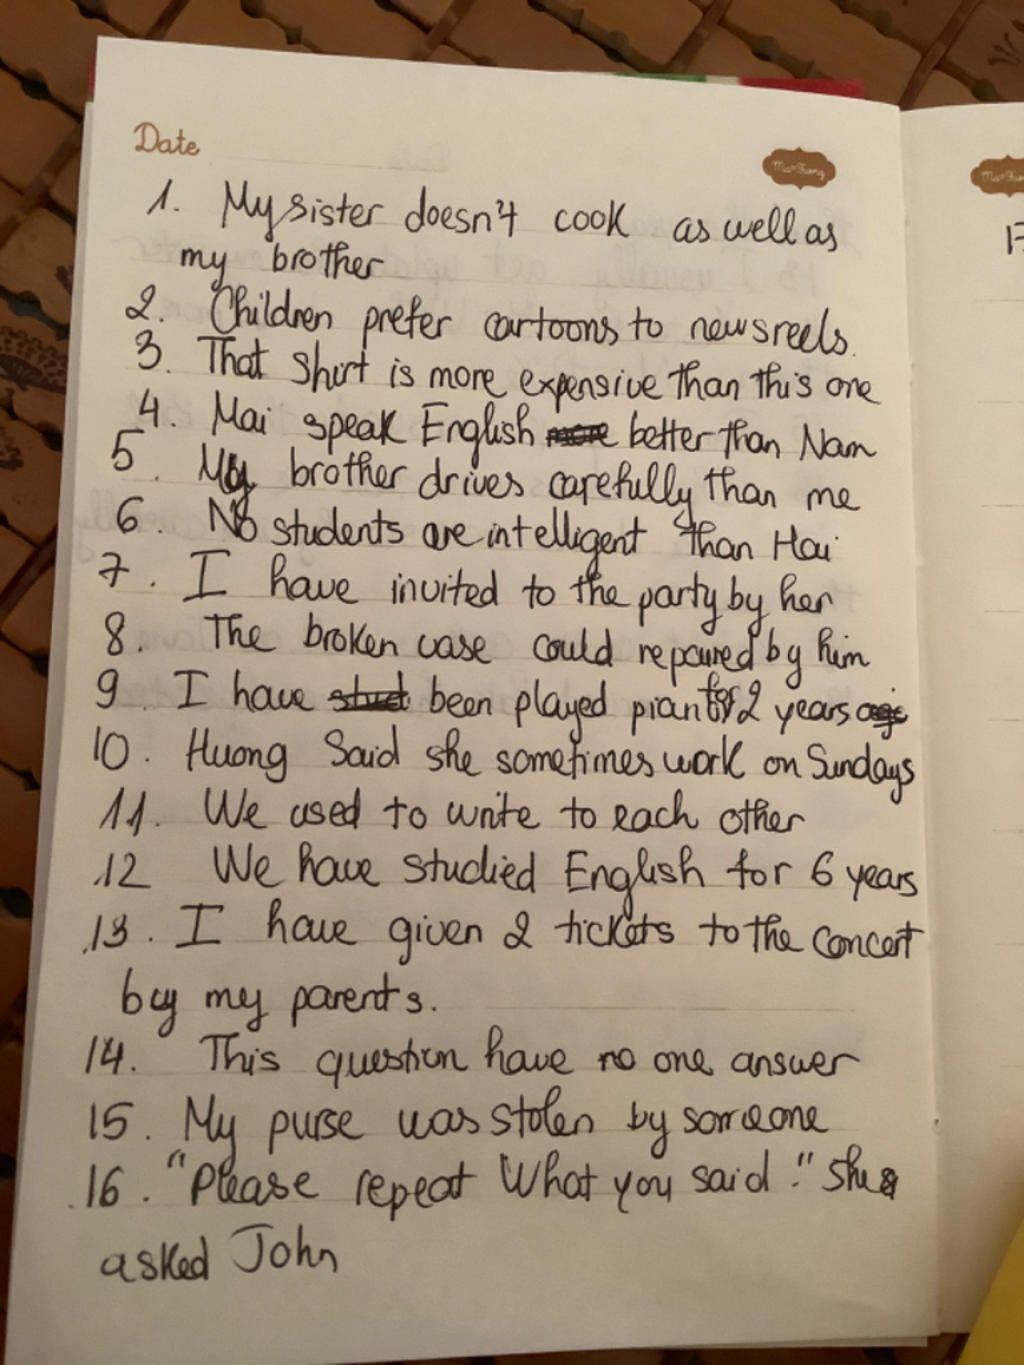 Date
1. My sister doesn't cook as well as
my brother
2. Children prefer cartoons to newsreels.
3. That Shirt is more expensive than this one
4. Mai speak English more better than Nam
5. My brother drives carefully than me
6. No students are intelligent than Hai
7. I have invited to the party by her
8. The broken vase could repaired by him
9 I have been played piano for 2 years
10. Huong Said she sometimes work on Sundays
11. We used to write to each other
12 We have studied English for 6 years
13. I have given 2 tickets to the concert
by my parents.
14. This question have no one answer
15. My purse was stolen by someone
16. "Please repeat What you said." She
asked John